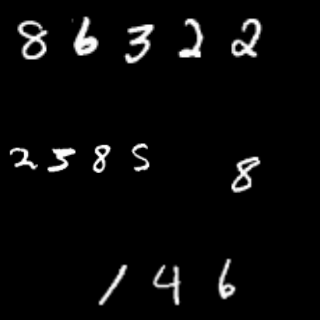 86322
2585 8
146